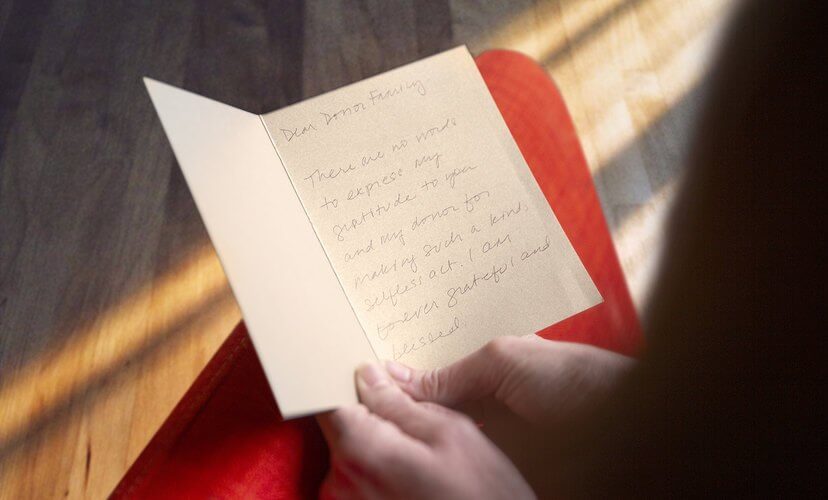 Dear Donor Family
There are no words
to express my
gratitude to you
and my donor for
making such a kind,
selfless act. I am
forever grateful and
blessed.